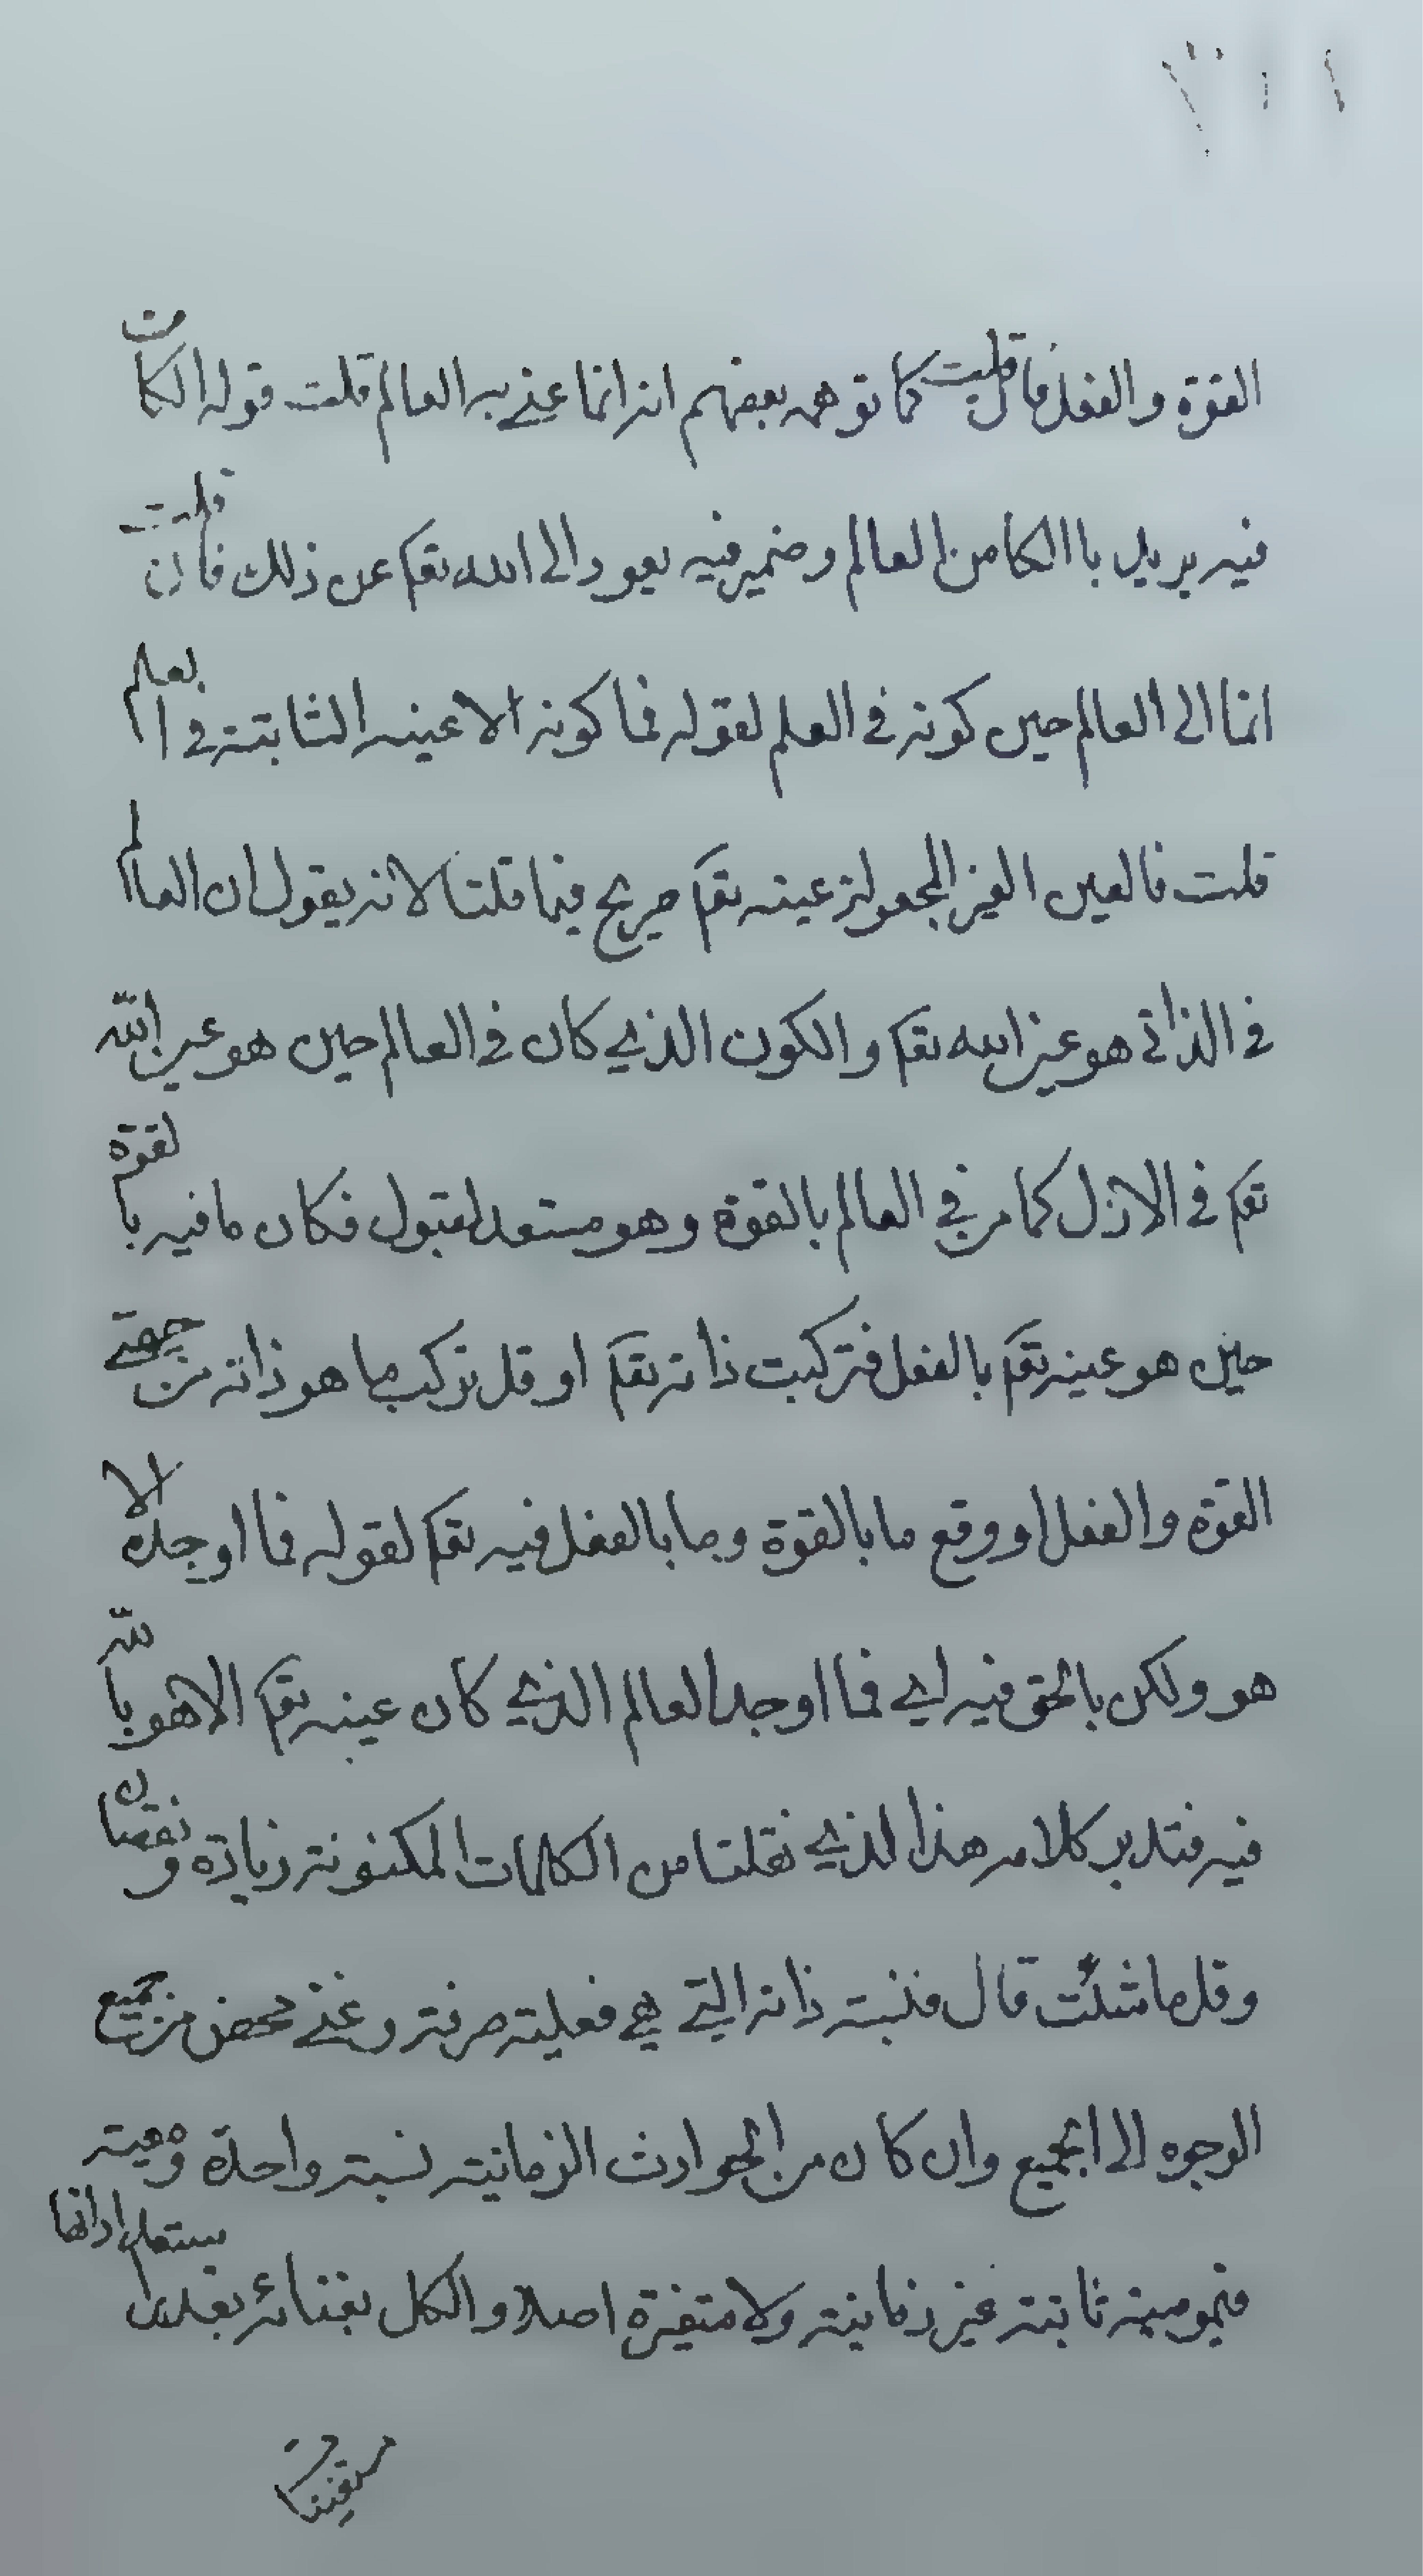 القوة والفعل فان قلت كما توهمه بعضهم انه انما عنى به العالم قلت قوله الكامن
فيه يريد بالكامن العالم وضمير فيه يعود الى الله تعم عن ذلك فان قلت
انما الى العالم حين كونه في العلم لقوله فما كونه الا عينه الثابتة في العلم
قلت فالعين الغير المجعولة عينه تعم صريح فيما قلنا لانه يقول ان العالم
في الذاتي هو عين الله تعم والكون الذي كان في العالم حين هو عين الله
تعم في الازل كما مر في العالم بالقوة وهو مستعد لقبول فكان ما فيه بالقوة
حين هو عينه تعم بالفعل فتركبت ذاته تعم او قل تركب ما هو ذاته من جهتي
القوة والفعل او وقع ما بالقوة وما بالفعل فيه تعم لقوله فما اوجده الا
هو ولكن بالحق فيه اي فما اوجد العالم الذي كان عينه تعم الا هو بالله
فيه فتدبر كلامه هذا الذي نقلنا من الكلمات المكنونة زيادة ونقصان
وقل ما شئت قال فنسبة ذاته التي هي فعلية صرفة وغنى محض من جميع
الوجوه الى الجميع وان كان من الحوادث الزمانية نسبة واحدة ومعية
قيومية ثابتة غير زمانية ولا متغيرة اصلا والكل بغنائه بقدر استعداداتها